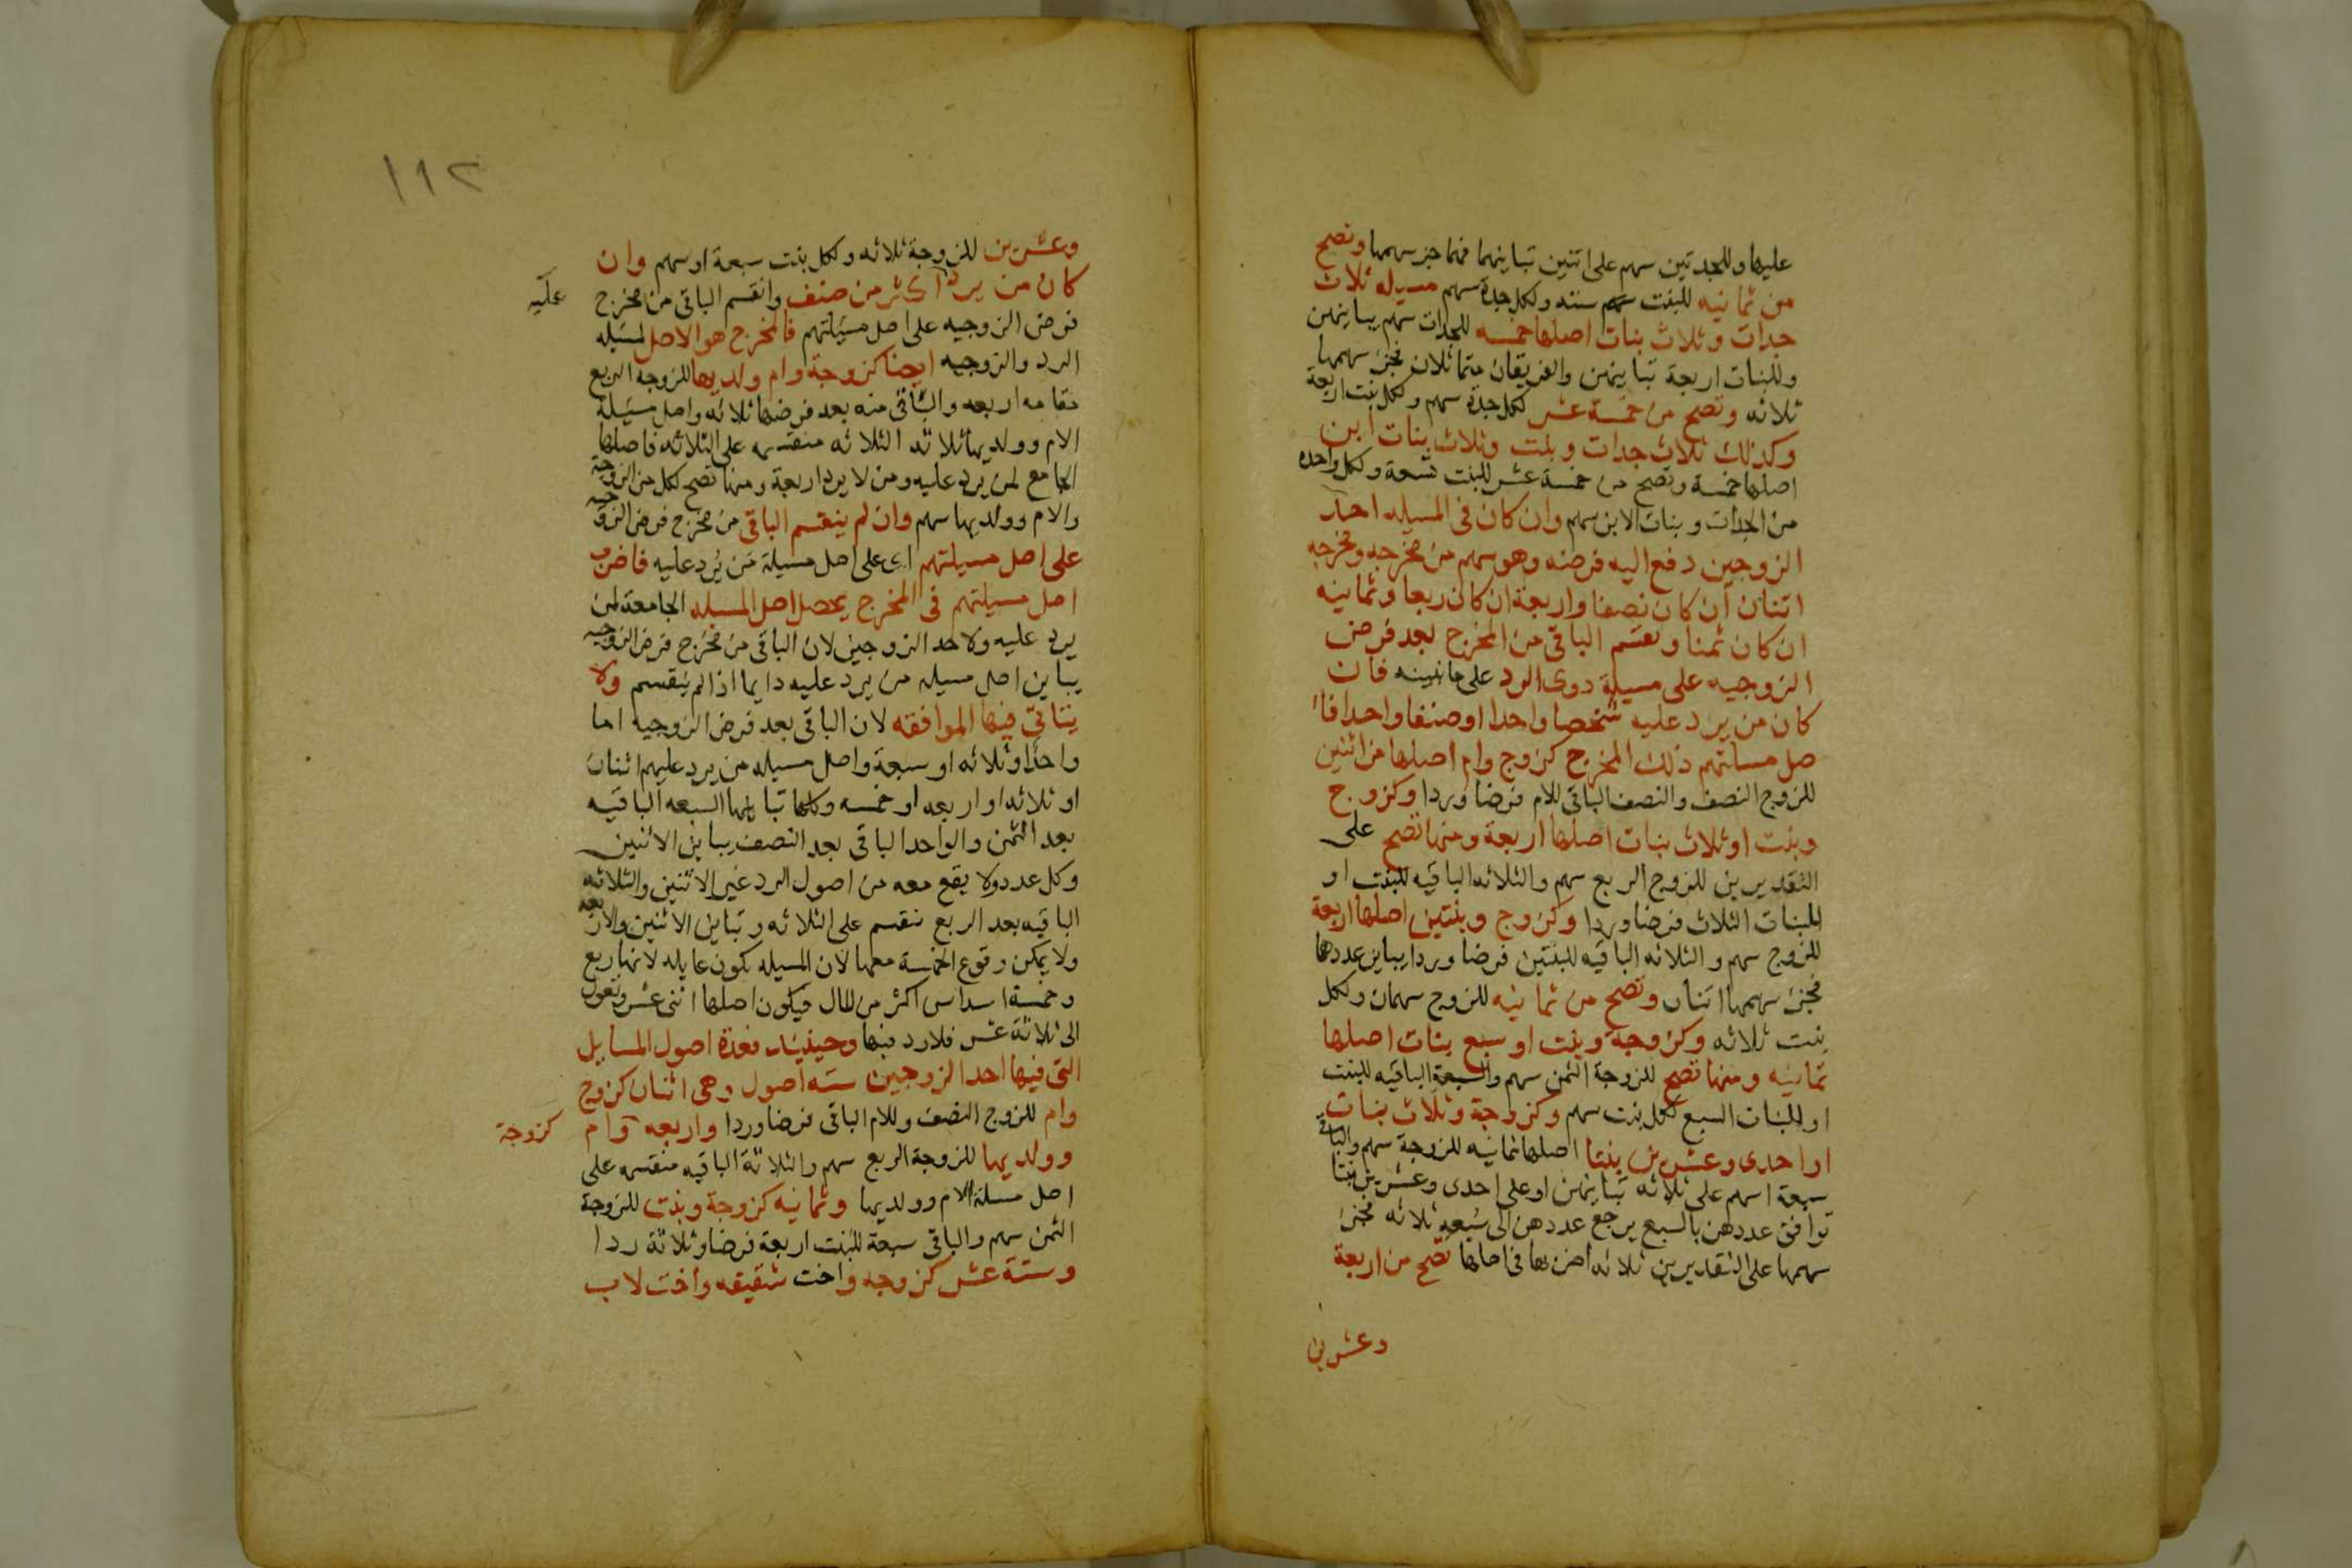 عليها وللجدتين سهم على اثنين تباينهما فهما جز سهمها وتصح
من ثمانيه للبنت سهم سته ولكل جدة سهم مسيله ثلاث
جدات وثلاث بنات اصلها خمسه للجدات سهم يباينهن
وللبنات اربعة تباينهن والفريقان متماثلان فجز سهمها
ثلاثه وتصح من خمسة عشر لكل جدة سهم ولكل بنت اربعة
وكذلك ثلاث جدات وبنت وثلاث بنات ابن
اصلها خمسة وتصح من خمسة عشر للبنت تسعة ولكل واحدة
من الجدات وبنات الابن سهم وان كان فى المسيله احد
الزوجين دفع اليه فرضه وهو سهم من مخرجه ومخرجه
اثنان ان كان نصفا واربعة ان كان ربعا وثمانيه
ان كان ثمنا ويقسم الباقى من المخرج بعد فرض
الزوجيه على مسيلة ذوى الرد على ما نبينه فان
كان من يرد عليه شخصا واحدا او صنفا واحدا فا
صل مسالتهم ذلك المخرج كزوج وام اصلها من اثنين
للزوج النصف والنصف الباقى للام فرضا وردا وكزوج
وبنت او ثلاث بنات اصلها اربعة ومنها تصح على
التقديرين للزوج الربع سهم والثلاثه الباقيه للبنت او
للبنات الثلاث فرضا وردا وكزوج وبنتين اصلها اربعة
للزوج سهم والثلاثه الباقيه للبنتين فرضا وردا يباين عددهما
فجز سهمها اثنان وتصح من ثمانيه للزوج سهمان ولكل
بنت ثلاثه وكزوجة وبنت او سبع بنات اصلها
ثمانيه ومنها تصح للزوجة الثمن سهم والسبعة الباقيه للبنت
او للبنات السبع لكل بنت سهم وكزوجة وثلاث بنات
او احدى وعشرين بنتا اصلها ثمانيه للزوجة سهم والباقى
سبعة اسهم على ثلاثه تباينهن او على احدى وعشرين بنتا
توافق عددهن بالسبع يرجع عددهن الى سبعه ثلاثه فجز
سهمها على التقديرين ثلاثه اضربها فى اصلها تصح من اربعة
وعشرين
١١٢
وعشرين للزوجة ثلاثه ولكل بنت سبعة او سهم وان
كان من يرد اكثر من صنف وانقسم الباقى من مخرج
عليه
فرض الزوجيه على اصل مسيلتهم فالمخرج هو الاصل لمسيله
الرد والزوجيه ايضا كزوجة وام وولديها للزوجه الربع
مقامه اربعه والباقى منه بعد فرضها ثلاثه واصل مسيلة
الام وولديها ثلاثه الثلاثه منقسمه على الثلاثه فاصلها
الجامع لمن يرد عليه ومن لا يرد اربعة ومنها تصح لكل من الزوجة
والام وولديها سهم وان لم ينقسم الباقى من مخرج فرض الزوجيه
على اصل مسيلتهم اى على اصل مسيلة من يُرد عليه فاضرب
اصل مسيلتهم فى المخرج يحصل اصل المسيله الجامعة لمن
يرد عليه ولاحد الزوجين لان الباقى من مخرج فرض الزوجيه
يباين اصل مسيله من يرد عليه دايما اذا لم ينقسم ولا
يتاتى فيها الموافقه لان الباقى بعد فرض الزوجيه اما
واحدا او ثلاثه او سبعة واصل مسيله من يرد عليهم اثنان
او ثلاثه او اربعه او خمسه وكلها تباينها السبعه الباقيه
بعد الثمن والواحد الباقى بعد النصف يباين الاثنين
وكل عدد ولا يقع معه من اصول الرد غير الاثنين والثلاثه
الباقيه بعد الربع تنقسم على الثلاثه وتباين الاثنين والاربعه
ولا يمكن وقوع الخمسة معها لان المسيله تكون عايله لانها ربع
وخمسة اسداس اكثر من المال فيكون اصلها اثنى عشر وتعول
الى ثلاثة عشر فلا رد فيها وحينيذ فعدة اصول المسايل
التى فيها احد الزوجين سته اصول وهى اثنان كزوج
وام للزوج النصف وللام الباقى فرضا وردا واربعه وام
كزوجة
وولديها للزوجة الربع سهم والثلاثة الباقيه منقسمه على
اصل مسلة الام وولديها وثمانيه كزوجة وبنت للزوجة
الثمن سهم والباقى سبعة للبنت اربعة فرضا وثلاثة ردا
وستة عشر كزوجه واخت شقيقه واخت لاب